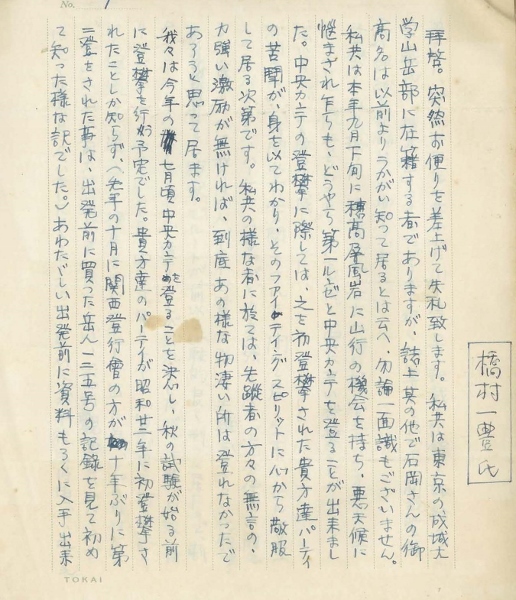 No. 1
橋村一豊氏
拝啓。突然お便りを差上げて失礼致します。私共は東京の成城大
学山岳部に在籍する者でありますが、誌上其の他で石岡さんの御
高名は以前よりうかがい知って居るとは云へ、勿論一面識もございません。
私共は本年九月下旬に穂高屏風岩に山行の機会を持ち、悪天候に
悩まされ乍らも、どうやら第一ルンゼと中央カンテを登ることが出来まし
た。中央カンテの登攀に際しては、之を初登攀された貴方達パーティ
の苦闘が、身を以てわかり、そのファイティングスピリットに心から敬服
して居る次第です。私共の様な者に於ては、先蹤者の方々の無言の、
力強い激励が無ければ、到底あの様な物凄い所は登れなかったで
あろうと思って居ます。
我々は今年の七月頃中央カンテを登ることを決心し、秋の試験が始る前
に登攀を行う予定でした。貴方達のパーティが昭和廿二年に初登攀さ
れたことしか知らず、(昨年の十月に関西登行僧の方が十年ぶりに第
二登をされた事は、出発前に買った岳人一二五号の記録を見て初め
て知った様な訳でした。)あわただしい出発前に資料もろくに入手出来
TOKAI